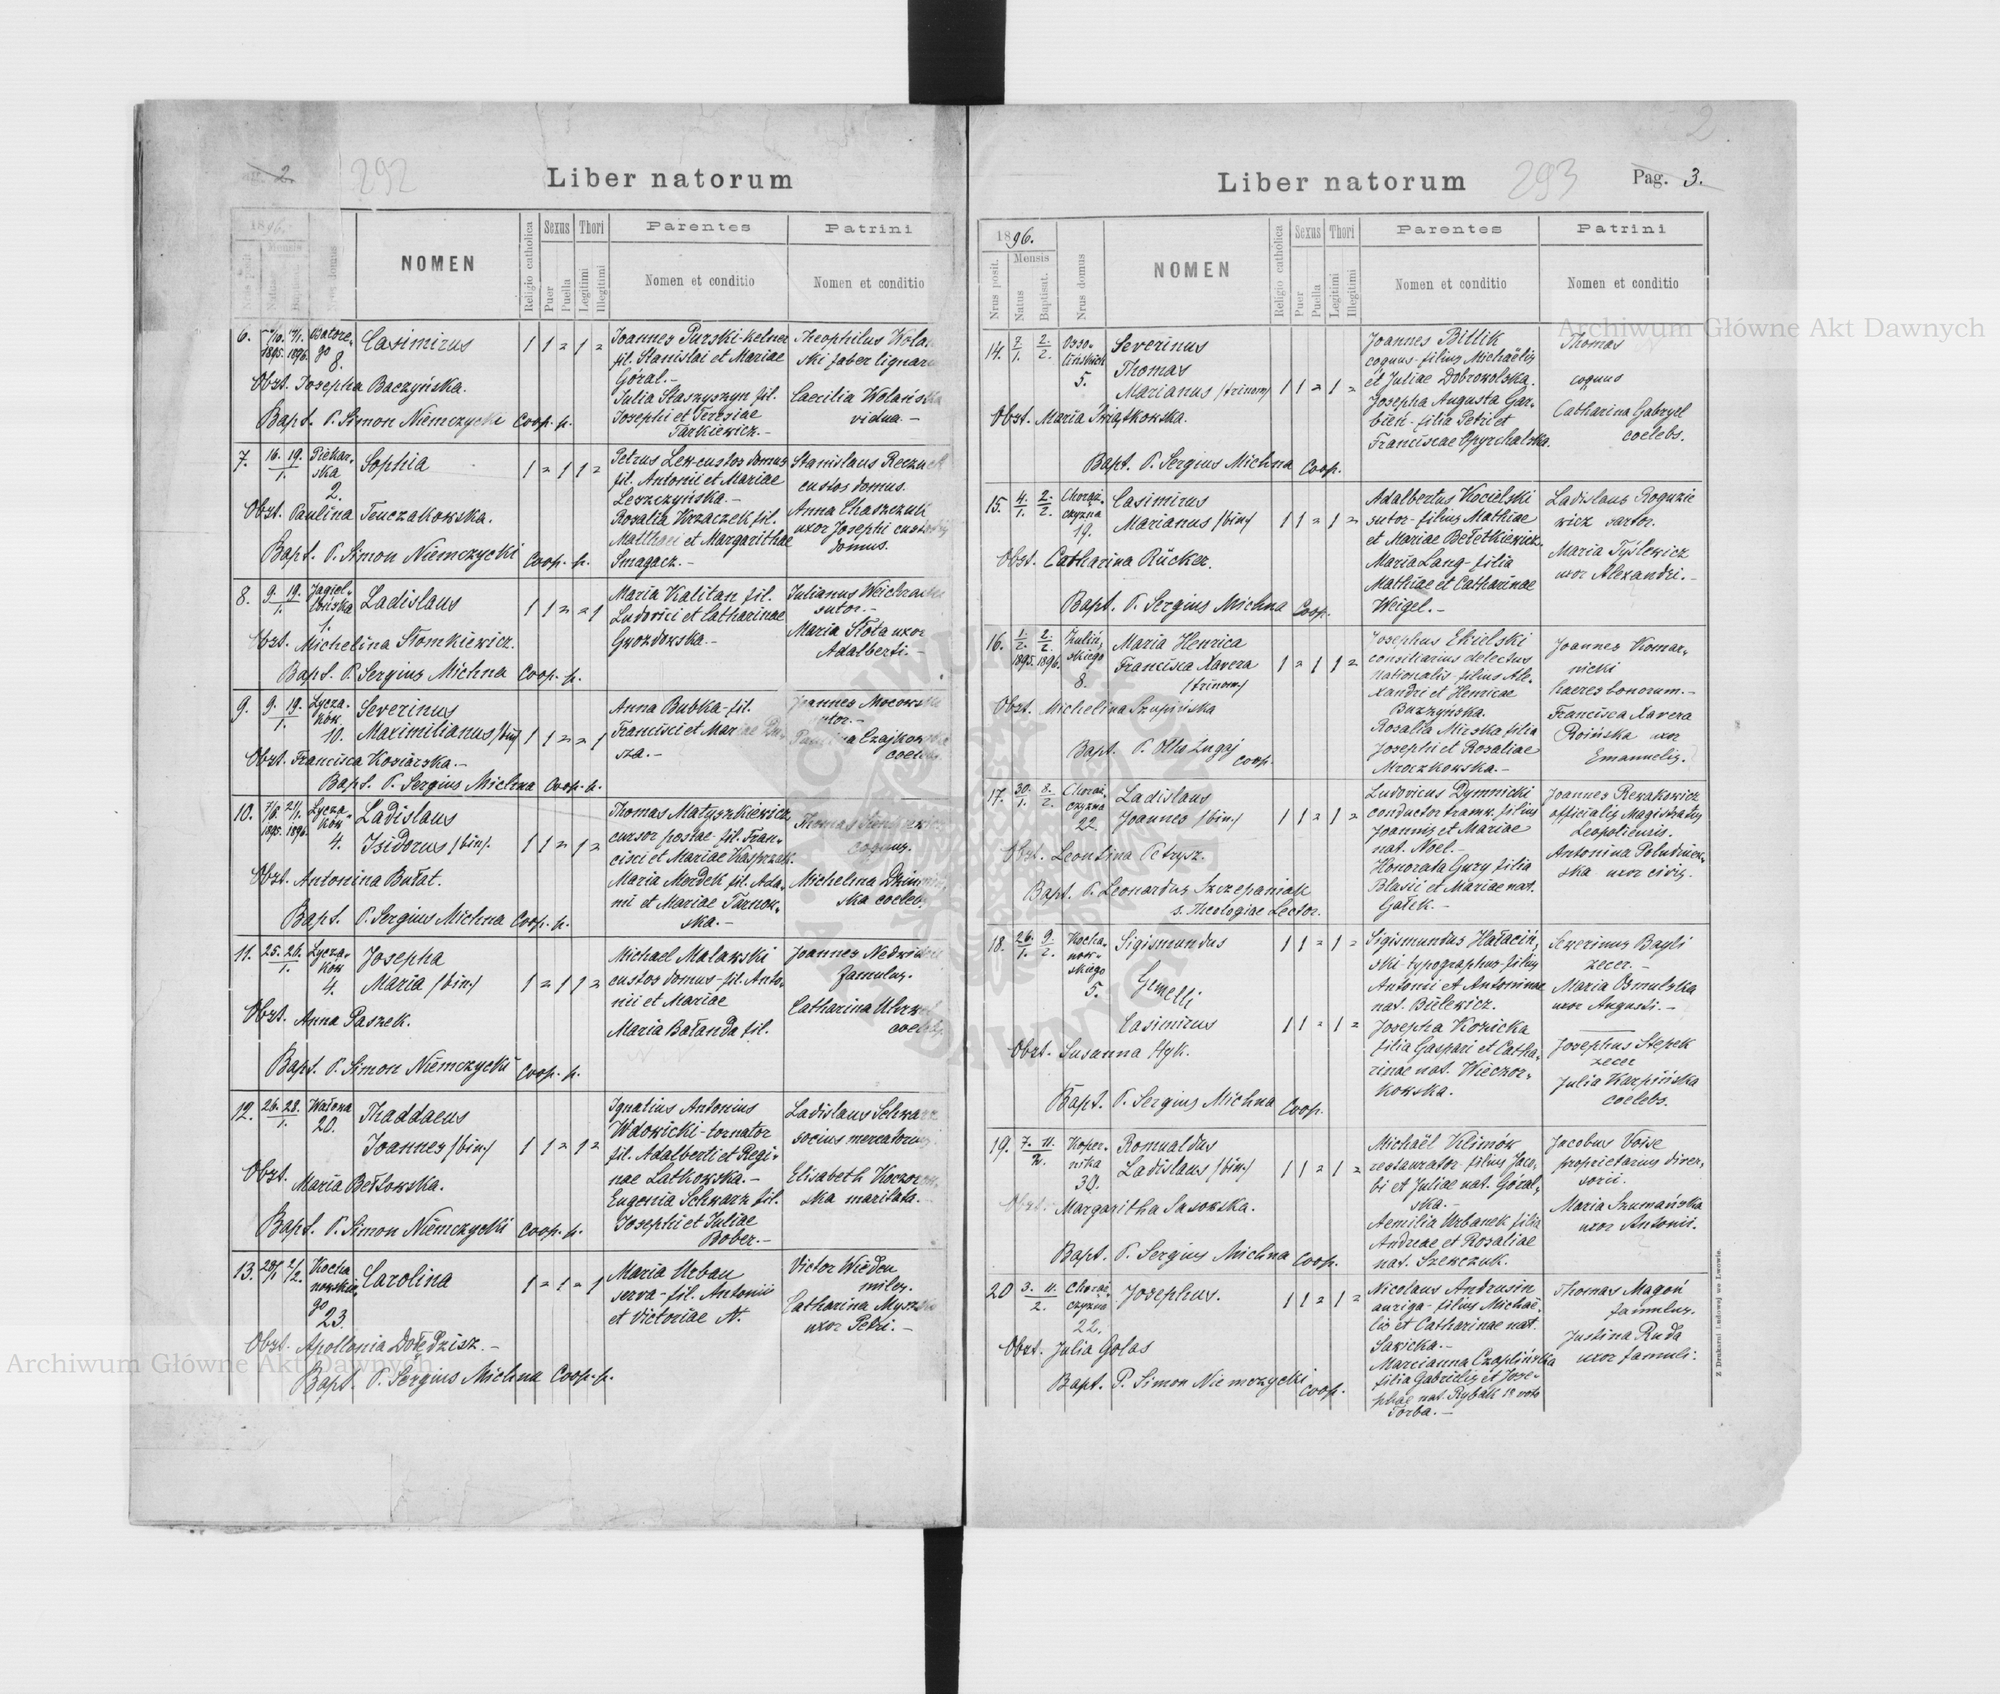 2
292
Liber natorum
1896.
Nrus posit.
Mensis
Natus
Baptisat.
Nrus domus
NOMEN
Religio catholica
Sexus
Puer
Puella
Thori
Legitimi
Illegitimi
Parentes
Nomen et conditio
Patrini
Nomen et conditio
6. 1895. 1896. Batore-
go
8.
Casimirus
1 1 = 1 =
Joannes Purski kelner
fil. Stanislai et Mariae
Góral.-
Julia Staszyszyn fil.
Josephi et Teresiae
Tarkiewicz.-
Theophilus
ski faber
Caecilia Wolańska
vidua.-
Obst. Josepha Baczyńska.
Bapt. P. Simon Niemczycki Coop. p.
7. 16. 19.
1.
Piekar-
ska
2.
Sophia
1 = 1 1 =
Petrus Lew custos domus
fil. Antonii et Mariae
Leszczyńska.-
Rosalia Krzaczek fil.
Matthaei et Margarithae
Smagacz.-
Stanislaus
custos domus.
Anna Chaszczuk
uxor Josephi custodis
domus.
Obst. Paulina Tenczakowska.
Bapt. P. Simon Niemczycki Coop. p.
8. 9. 19.
1.
Jagiel-
lońska
1.
Ladislaus
1 1 = = 1
Maria Kalitan fil.
Ludovici et Catharinae
Gwozdowska.-
Julianus
sutor.-
Maria Słota uxor
Adalberti.-
Obst. Michelina Słomkiewicz.
Bapt. P. Sergius Michna Coop. p.
9. 9. 19.
1.
Lycza-
ków
10.
Severinus
Maximilianus /bin/
1 1 = = 1
Anna Bubka-fil.
Francisci et Mariae
sza.-
Joannes
Czajkowska
coelebs.
Obst. Francisca Kosiarska.-
Bapt. P. Sergius Michna Coop. p.
10. 7/8. 21/1.
1895. 1896.
Lycza-
ków
4.
Ladislaus
Isidorus /bin/.
1 1 = 1 =
Thomas Matyszkiewicz
cursor postae fil. Fran-
cisci et Mariae Kasprzak.
Maria Merdek fil. Ada-
mi et Mariae Tarnow-
ska.-
Thomas
coquus.
Michelina
ska coelebs
Obst. Antonina Bułat.
Bapt. P. Sergius Michna Coop. p.
11. 25. 26.
1.
Lycza-
ków
4.
Josepha
Maria /bin/
1 = 1 1 =
Michael Malawski
custos domus-fil. Anto-
nii et Mariae
Maria Bałanda fil.
Joannes
famulus.
Catharina
coelebs.
Obst. Anna Paszek.
Bapt. P. Simon Niemczycki Coop. p.
12. 26. 28.
1.
Wałowa
20.
Thaddaeus
Joannes /bin/
1 1 = 1 =
Ignatius Antonius
Wdowicki-tornator
fil. Adalberti et Regi-
nae Latkowska.-
Eugenia Schwarz fil.
Josephi et Juliae
Bober.-
Ladislaus Schwarz
socius mercatorius.
Elisabeth
ska maritata.
Obst. Maria Bełtowska.
Bapt. P. Simon Niemczycki Coop. p.
13. 28/1 2/2.
Kocha
nowskie-
go
23.
Carolina
1 = 1 = 1
Maria Urban
serva-fil. Antonii
et Victoriae N.
Victor Wieden
miles.
Catharina
uxor Petri.-
Obst. Apollonia Dołędzisz.-
Bapt. P. Sergius Michna Coop. p.
2
Liber natorum
293
Pag. 3.
1896.
Nrus posit.
Mensis
Natus
Baptisat.
Nrus domus
NOMEN
Religio catholica
Sexus
Puer
Puella
Thori
Legitimi
Illegitimi
Parentes
Nomen et conditio
Patrini
Nomen et conditio
14. 2/2.
Osso-
lińskich
5.
Severinus
Thomas
Marianus /trinom/
1 1 = 1 =
Joannes Bittik
coquus-filius Michaëlis
et Juliae Dobrowolska.
Josepha Augusta Gar-
bień-filia Petri et
Franciscae Opyrchalska.
Thomas
coquus
Catharina Gabryel
coelebs.
Obst. Maria Świątkowska.
Bapt. P. Sergius Michna Coop.
15. 4/1. 2/2.
Chorąż-
czyzna
19.
Casimirus
Marianus /bin/
1 1 = 1 =
Adalbertus Kocielski
sutor-filius Mathiae
et Mariae Bełetkiewicz.
Maria Lang-filia
Mathiae et Catharinae
Weigel.-
Ladislaus Roguzie
wicz sartor.
Maria Tyślewicz
uxor Alexandri.-
Obst. Catharina Rücker.
Bapt. P. Sergius Michna Coop.
16. 1/2. 2/2.
1895. 1896.
Żuliń-
skiego
8.
Maria Henrica
Francisca Xavera
/trinom/
1 = 1 1 =
Josephus Ekielski
consiliarius delectus
nationalis-filius Ale-
xandri et Henricae
Buzzyńska.
Rosalia Mirska filia
Josephi et Rosaliae
Mroczkowska.-
Joannes Komar-
nicki
haeres bonorum.-
Francisca Xavera
Roińska uxor
Emanuelis.
Obst. Michelina Szupińska
Bapt. P. Otto Żugaj
Coop.
17. 30/1. 8/2.
Chorąż-
czyzna
22.
Ladislaus
Joannes /bin/
1 1 = 1 =
Ludovicus Dymnicki
conductor tramw. filius
Joannis et Mariae
nat. Noel.-
Honorata Gury filia
Blasii et Mariae nat.
Gałek.-
Joannes Rewakowicz
officialis Magistratus
Leopoliensis.
Antonina
ska uxor civis.
Obst. Leontina Petrysz.
Bapt. P. Leonardus Szczepaniak
s. Theologiae Lector.
18. 26/1. 9/2.
Kocha-
now-
skiego
5.
Sigismundus
1 1 = 1 =
Gemelli
Casimirus
1 1 = 1 =
Sigismundus Hałaciń-
ski-typographus-filius
Antonii et Antoninae
nat. Bulewicz.
Josepha Kozicka
filia Gaspari et Catha-
rinae nat. Wieczor-
kowska.
Severinus Bayli
zecer.-
Maria Osmulska
uxor Augusti.-
Josephus Stepek
zecer
Julia Karpińska
coelebs.
Obst. Susanna Hyk.
Bapt. P. Sergius Michna Coop.
19. 7. 11.
2.
Koper-
nika
30.
Romualdus
Ladislaus /bin/
1 1 = 1 =
Michaël Klimów
restaurator-filius Jaco-
bi et Juliae nat. Góral-
ska.-
Aemilia Urbanek filia
Andreae et Rosaliae
nat. Szewczuk.
Jacobus Voise
proprietarius diver-
sorii.
Maria Szumańska
uxor Antonii.
Obst. Margaritha Sasowska.
Bapt. P. Sergius Michna Coop.
20 3. 11.
2.
Chorąż-
czyzna
22.
Josephus.
1 1 = 1 =
Nicolaus Andrusin
auriga-filius Michaë-
lis et Catharinae nat.
Sawicka.-
Marcianna Czoplińska
filia Gabrielis et Jose-
phae nat. Rybak 1º voto
Torba.-
Thomas Magoń
famulus.
Justina Ruda
uxor famuli.
Obst. Julia Golas
Bapt. P. Simon Niemczycki Coop.
Z Drukarni Ludowej we Lwowie.
Archiwum Główne Akt Dawnych
Archiwum Główne Akt Dawnych